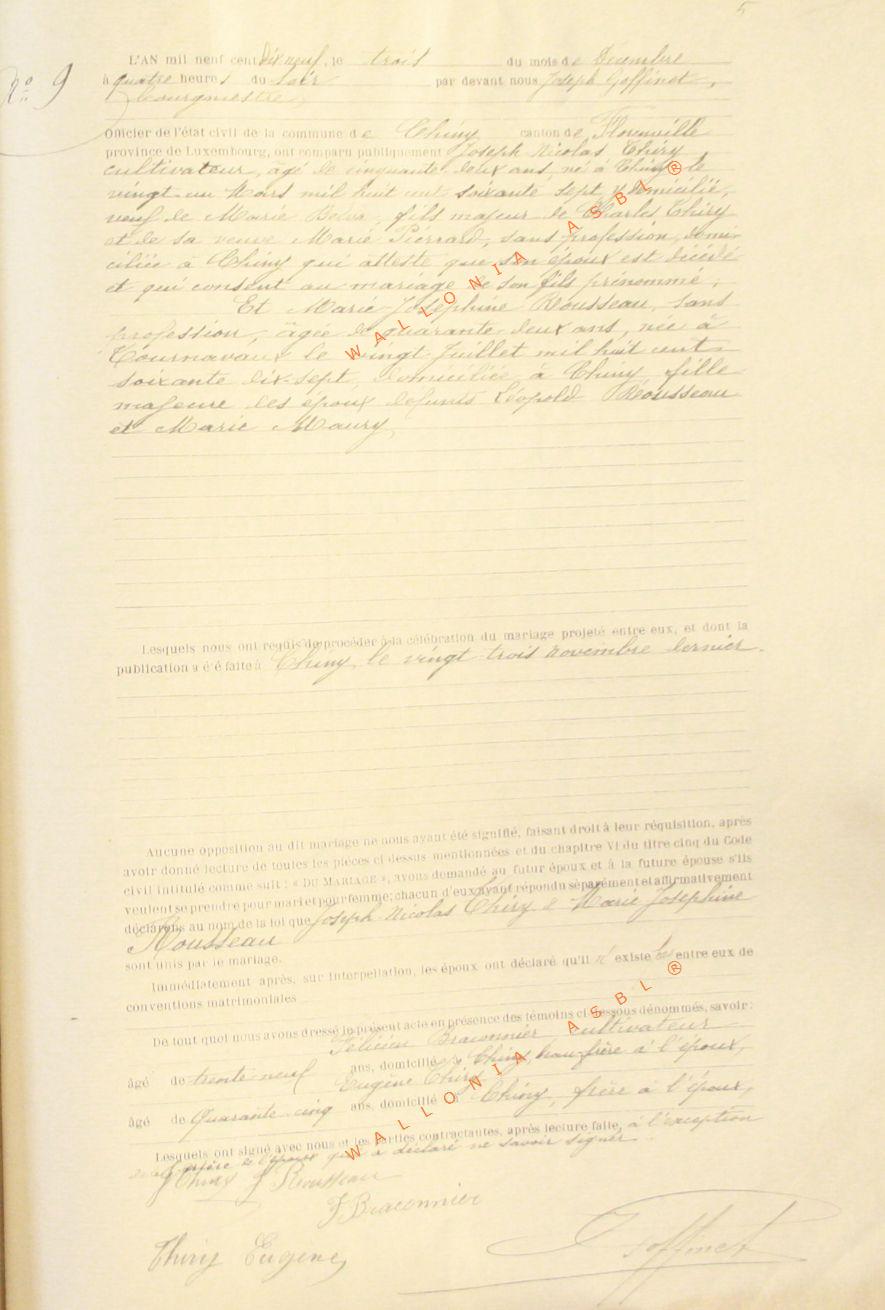 5
N° 9
L'AN mil neuf cent dix neuf, le trois du mois de Décembre
à quatre heures du soir par devant nous Joseph Goffinet,
bourgmestre
Officier de l'état civil de la commune de Chiny canton de Florenville
province de Luxembourg, ont comparu publiquement Joseph Nicolas Thiry
cultivateur, âgé de cinquante deux ans, né à Chiny le
vingt un Mars mil huit cent soixante sept y domicilié,
veuf de Marie, fils majeur de Charles Thiry
et de sa veuve Marie Piérrard, sans profession, domi-
ciliée à Chiny qui atteste que son époux est décédé
et qui consent au mariage de son fils prénommé;
Et Marie Joséphine Rousseau, sans
profession, âgée de quarante deux ans, née à
Tournavaux le vingt Juillet mil huit cent
soixante dix-sept, domiciliée à Chiny, fille
majeure des époux défunts Léopold Rousseau
et Marie Maury
Lesquels nous ont requis de procéder à la célébration du mariage projeté entre eux, et dont la
publication a été faite à Chiny, le vingt trois novembre dernier.
Aucune opposition au dit mariage ne nous ayant été signifié, faisant droit à leur réquisition, après
avoir donné lecture de toutes les pièces ci dessus mentionnées et du chapitre VI du titre cinq du Code
civil intitulé comme suit : « DU MARIAGE », avons demandé au futur époux et à la future épouse s'ils
veulent se prendre pour mari et pour femme; chacun d'eux ayant répondu séparément et affirmativement
déclarons au nom de la loi que Joseph Nicolas Thiry & Marie Joséphine
Rousseau
sont unis par le mariage.
Immédiatement après, sur interpellation, les époux ont déclaré qu'il n' existe pas entre eux de
conventions matrimoniales
De tout quoi nous avons dressé le présent acte en présence des témoins ci-dessous dénommés, savoir :
Félicien Braconnier cultivateur
âgé de trente neuf ans, domicilié à Chiny, beau-frère à l'époux,
Eugène Thiry
âgé de Quarante cinq ans, domicilié à Chiny, frère à l'époux,
Lesquels ont signé avec nous et les parties contractantes, après lecture faite, à l'exception
de la mère de l'époux qui a déclaré ne savoir signer.
J Thiry J Rousseau
F Braconnier
Thiry Eugene
J Goffinet
WALLONIA ASBL ®
WALLONIA ASBL ®